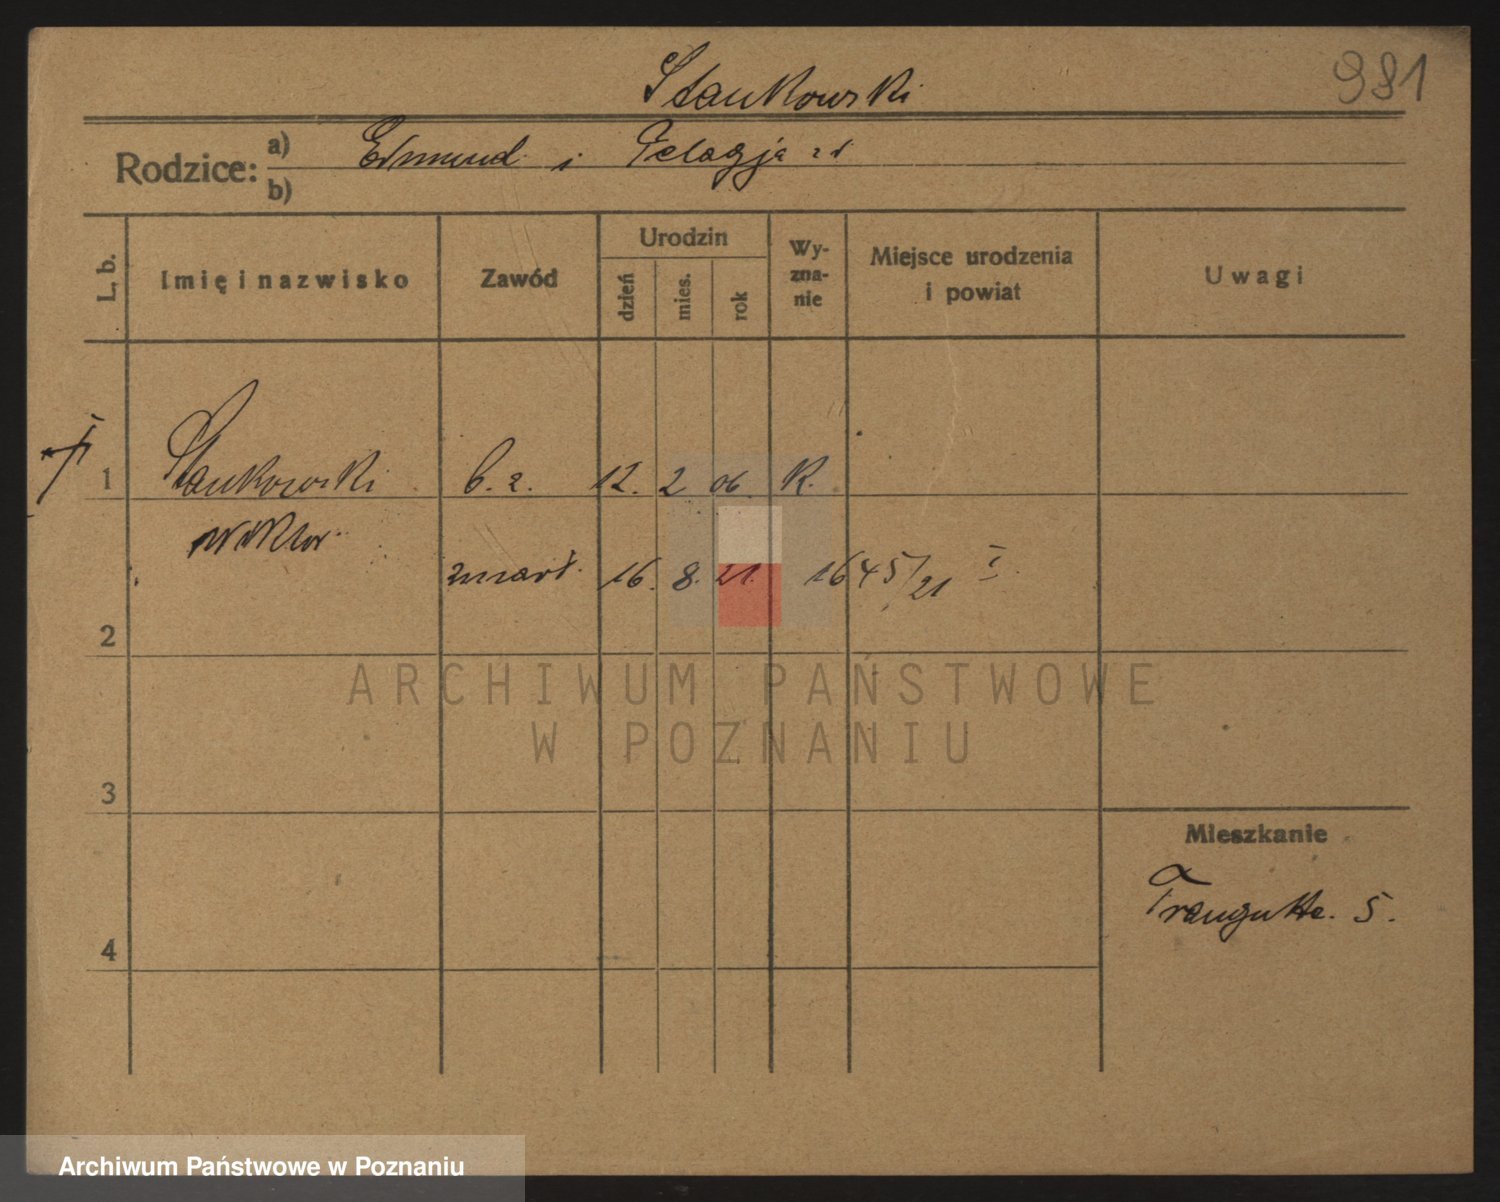 Stankowski
981
Rodzice: a) Edmund i Pelagja
b)
L. b. Imię i nazwisko Zawód Urodzin dzień mies. rok Wy-zna-nie Miejsce urodzenia i powiat Uwagi
1 Stankowski b. z. 12. 2 06. K.
Wiktor
zmarł. 16. 8. 21. 1645/21 I
2
ARCHIWUM PAŃSTWOWE
W POZNANIU
3
Mieszkanie
Traugutta. 5.
4
Archiwum Państwowe w Poznaniu